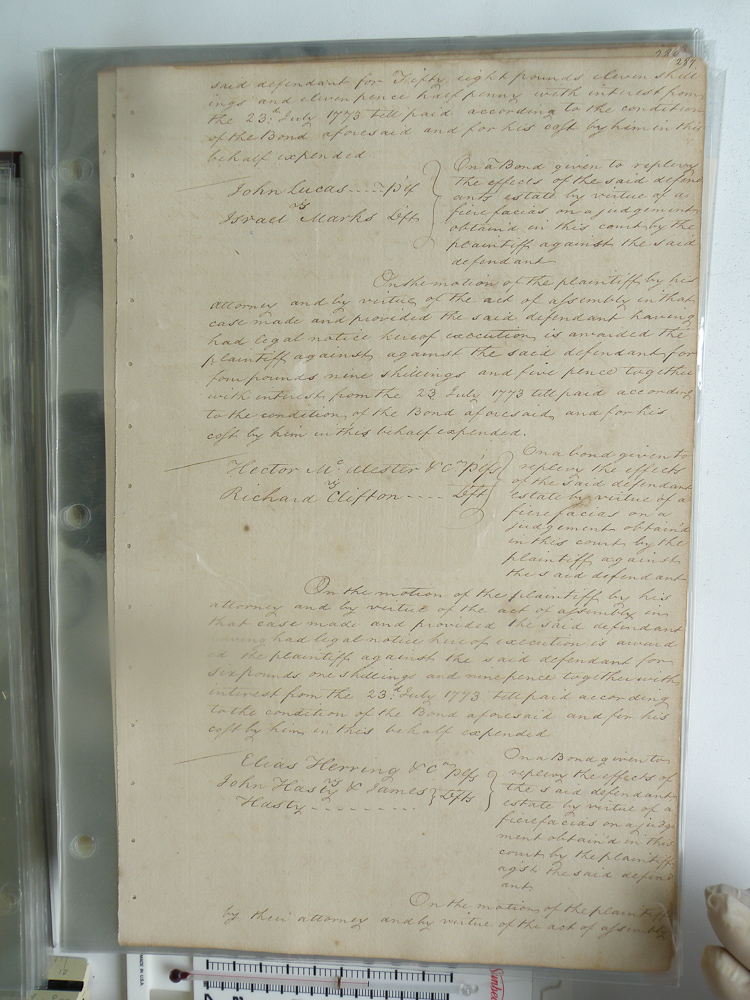 287
said defendant for Fifty eight pounds eleven shill
ings and eleven pence half penny with interest from
the 23.d July 1773 till paid according to the condition
of the Bond aforesaid and for his cost by him in this
behalf expended.
John Lucas ..... plf
vs
Israel Marks Dft
On a Bond given to replevy
the effects of the said defend
ants estate by virtue of a
fierefacias on a judgement
obtain'd in this court by the
plaintiff against the said
defendant
On the motion of the plaintiff by his
attorney and by virtue of the act of assembly in that
case made and provided the said defendant having
had legal notice hereof execution is awarded the
plaintiff against against the said defendant for
four pounds nine shillings and five pence together
with interest from the 23 July 1773 till paid according
to the condition of the Bond aforesaid and for his
cost by him in this behalf expended.
Hector Mc. Alester & Co plfs
vs
Richard Clifton .... Dft
On a bond given to
replevy the effects
of the said defendant
estate by virtue of a
fierefacias on a
judgement obtain'd
in this court by the
plaintiff against
the said defendant
On the motion of the plaintiff by his
attorney and by virtue of the act of assembly in
that case made and provided the said defendant
having had legal notice hereof execution is award
ed the plaintiff against the said defendant for
six pounds one shillings and nine pence together with
interest from the 23.d July 1773 till paid according
to the condition of the Bond aforesaid and for his
cost by him in this behalf expended
Elias Herring & Co plfs
vs
John Hasty & James } Dfts
Hasty ..........
On a Bond given to
replevy the effects of
the said defendants
estate by virtue of a
fierefacias on a judge
ment obtain'd in this
court by the plaintiff
agst the said defend
ant
On the motion of the plaintiff
by their attorney and by virtue of the act of assembly
MADE IN U.S.A.